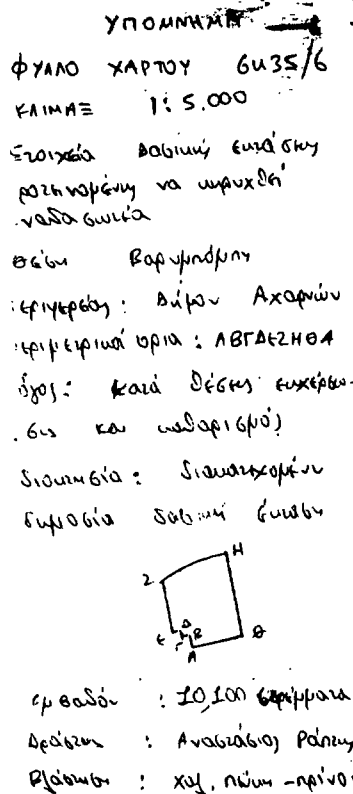 ΥΠΟΜΝΗΜΑ
ΦΥΛΛΟ ΧΑΡΤΟΥ 6435/6
ΚΛΙΜΑΞ 1:5.000
Στοιχεία δασικής εκτάσης
προτεινομένης να κηρυχθεί
αναδασωτέα
Θέση Βαρυμπόμπη
περιφέρεια: Δήμου Αχαρνών
περιμετρικά όρια: ΑΒΓΔΕΖΗΘΑ
λόγος: κατά θέσεις εκχέρσω-
σις και καθαρισμός
διοικησία: διακατεχομένη
δημοσία δασική έκταση
Ζ Η
Ε Δ
Γ Β Θ
Α
εμβαδόν: 10,100 στρέμματα
Δράστης: Αναστάσιος Ράπτης
Βλάστηση: χαλ. πεύκη - πρίνος